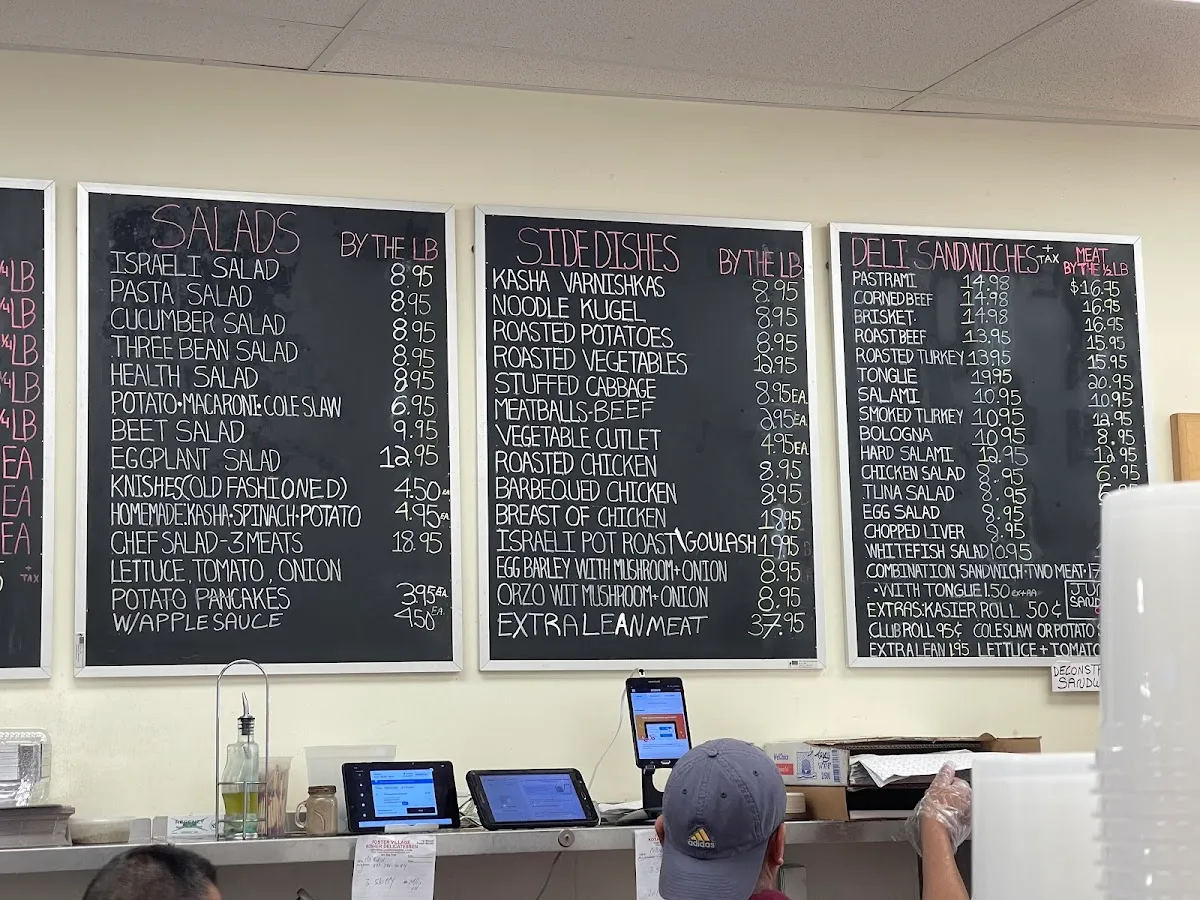 ¼LB
¼LB
¼LB
¼LB
¼LB
EA
EA
EA
+ TAX
SALADS BY THE LB
ISRAELI SALAD 8.95
PASTA SALAD 8.95
CUCUMBER SALAD 8.95
THREE BEAN SALAD 8.95
HEALTH SALAD 8.95
POTATO•MACARONI•COLE SLAW 6.95
BEET SALAD 9.95
EGGPLANT SALAD 12.95
KNISHES(OLD FASHIONED) 4.50 EA
HOMEMADE:KASHA•SPINACH•POTATO 4.95 EA
CHEF SALAD-3 MEATS 18.95
LETTUCE, TOMATO, ONION
POTATO PANCAKES 3.95 EA.
W/APPLE SAUCE 4.50 EA.
SIDE DISHES BY THE LB.
KASHA VARNISHKAS 8.95
NOODLE KUGEL 8.95
ROASTED POTATOES 8.95
ROASTED VEGETABLES 12.95
STUFFED CABBAGE 8.95 EA.
MEATBALLS-BEEF 2.95 EA.
VEGETABLE CUTLET 4.95 EA
ROASTED CHICKEN 8.95
BARBEQUED CHICKEN 8.95
BREAST OF CHICKEN 18.95
ISRAELI POT ROAST\GOULASH 19.95
EGG BARLEY WITH MUSHROOM+ONION 8.95
ORZO WIT MUSHROOM+ONION 8.95
EXTRA LEAN MEAT 37.95
DELI SANDWICHES + TAX MEAT BY THE ½ LB
PASTRAMI 14.98 $16.95
CORNED BEEF 14.98 16.95
BRISKET 14.98 16.95
ROAST BEEF 13.95 15.95
ROASTED TURKEY 13.95 15.95
TONGUE 19.95 20.95
SALAMI 10.95 10.95
SMOKED TURKEY 10.95 12.95
BOLOGNA 10.95 8.95
HARD SALAMI 12.95 12.95
CHICKEN SALAD 8.95 6.95
TUNA SALAD 8.95
EGG SALAD 8.95
CHOPPED LIVER 8.95
WHITEFISH SALAD 10.95
COMBINATION SANDWICH•TWO MEAT•
•WITH TONGUE 1.50 EXTRA
EXTRAS:KASIER ROLL 50¢
CLUB ROLL 95¢ COLE SLAW OR POTATO
EXTRA LEAN 1.95 LETTUCE + TOMATO
adidas
FOSTER VILLAGE
KOSHER DELICATESSEN